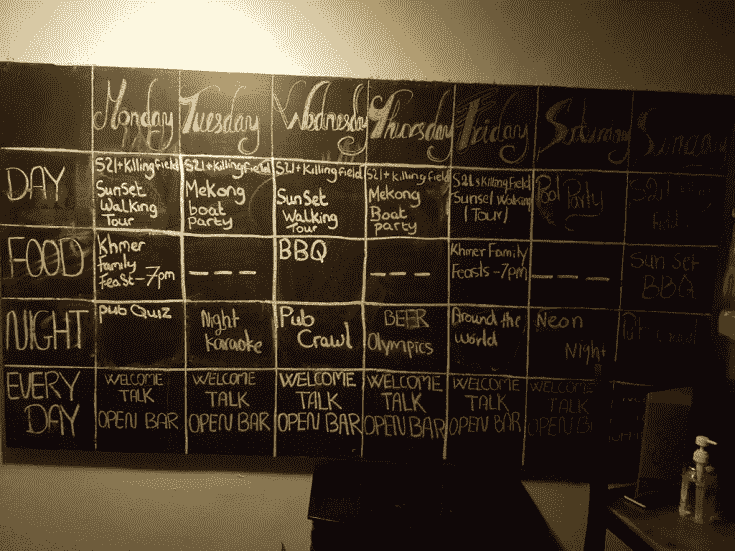 Monday Tuesday Wednesday Thursday Friday Saturday Sunday
DAY
S21+Killing field
SunSet
Walking
Tour
S21+Killing field
Mekong
boat
party
S21+Killing field
SunSet
Walking
Tour
S21+Killing field
Mekong
Boat
party
S21+Killing Field
Sunset Walking
(Tour)
Pool Party
S21
FOOD
Khmer
Family
Feast-7pm
---
BBQ
---
Khmer Family
Feasts-7pm
---
Sun Set
BBQ
NIGHT
Pub Quiz
Night
Karaoke
Pub
Crawl
BEER
Olympics
Around the
World
Neon
Night
EVERY
DAY
WELCOME
TALK
OPEN BAR
WELCOME
TALK
OPEN BAR
WELCOME
TALK
OPEN BAR
WELCOME
TALK
OPEN BAR
WELCOME
TALK
OPEN BAR
WELCOME
TALK
OPEN